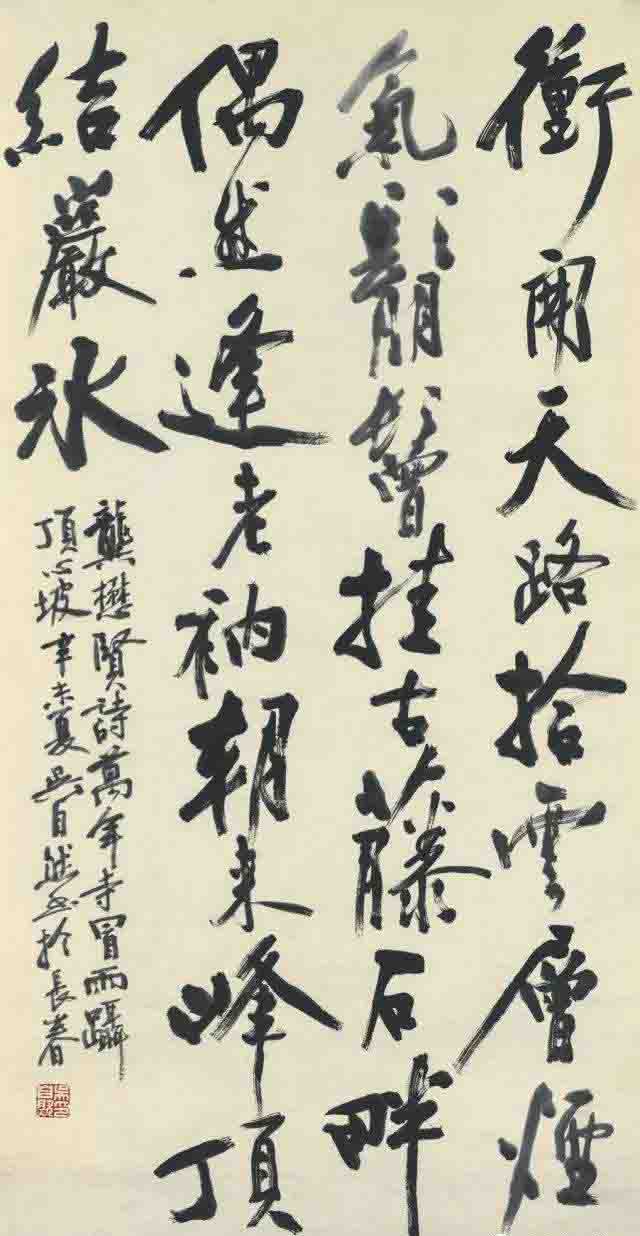 衝開天路拾雲層煙
氣鬅鬙挂古藤石畔
偶然逢老衲朝来峰頂
結巖冰
龔懋賢詩萬年寺冒雨躡
頂心坡辛未夏吳自然書於長春